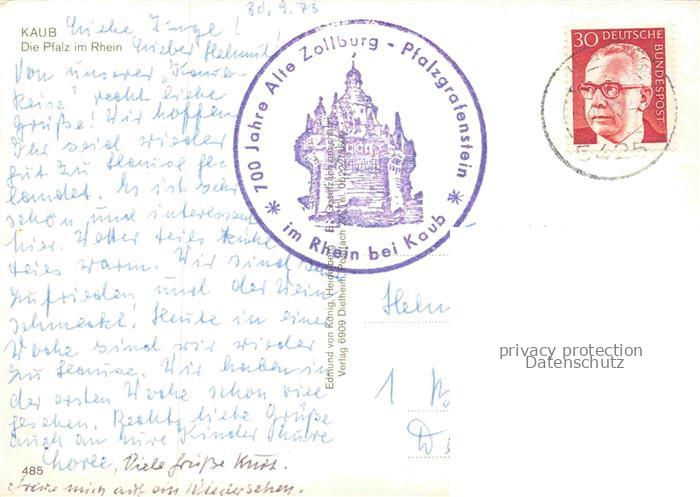 KAUB
Die Pfalz im Rhein
30.9.73
Liebe Inge!
Lieber Helmut!
Von unserer
Reise" recht liebe
Grüße! Wir hoffen
Ihr seid wieder
gut zu Hause ge-
landet. Es ist sehr
schön und interessant
hier. Wetter teils kühl
teils warm. Wir sind
zufrieden und der Wein
schmeckt. Heute in einer
Woche sind wir wieder
zu Hause. Wir haben in
der ersten Woche schon viel
gesehen. Recht liebe Grüße
auch an Eure Kinder Eure
Viele Grüße Kurt.
Freue mich auf ein Wiedersehen.
485
* 700 Jahre Alte Zollburg - Pfalzgrafenstein *
im Rhein bei Kaub
Edmund von König, Heidelberg
Verlag 6909 Dielheim, Postfach
30 DEUTSCHE
BUNDESPOST
5425
Helm
1
privacy protection
Datenschutz